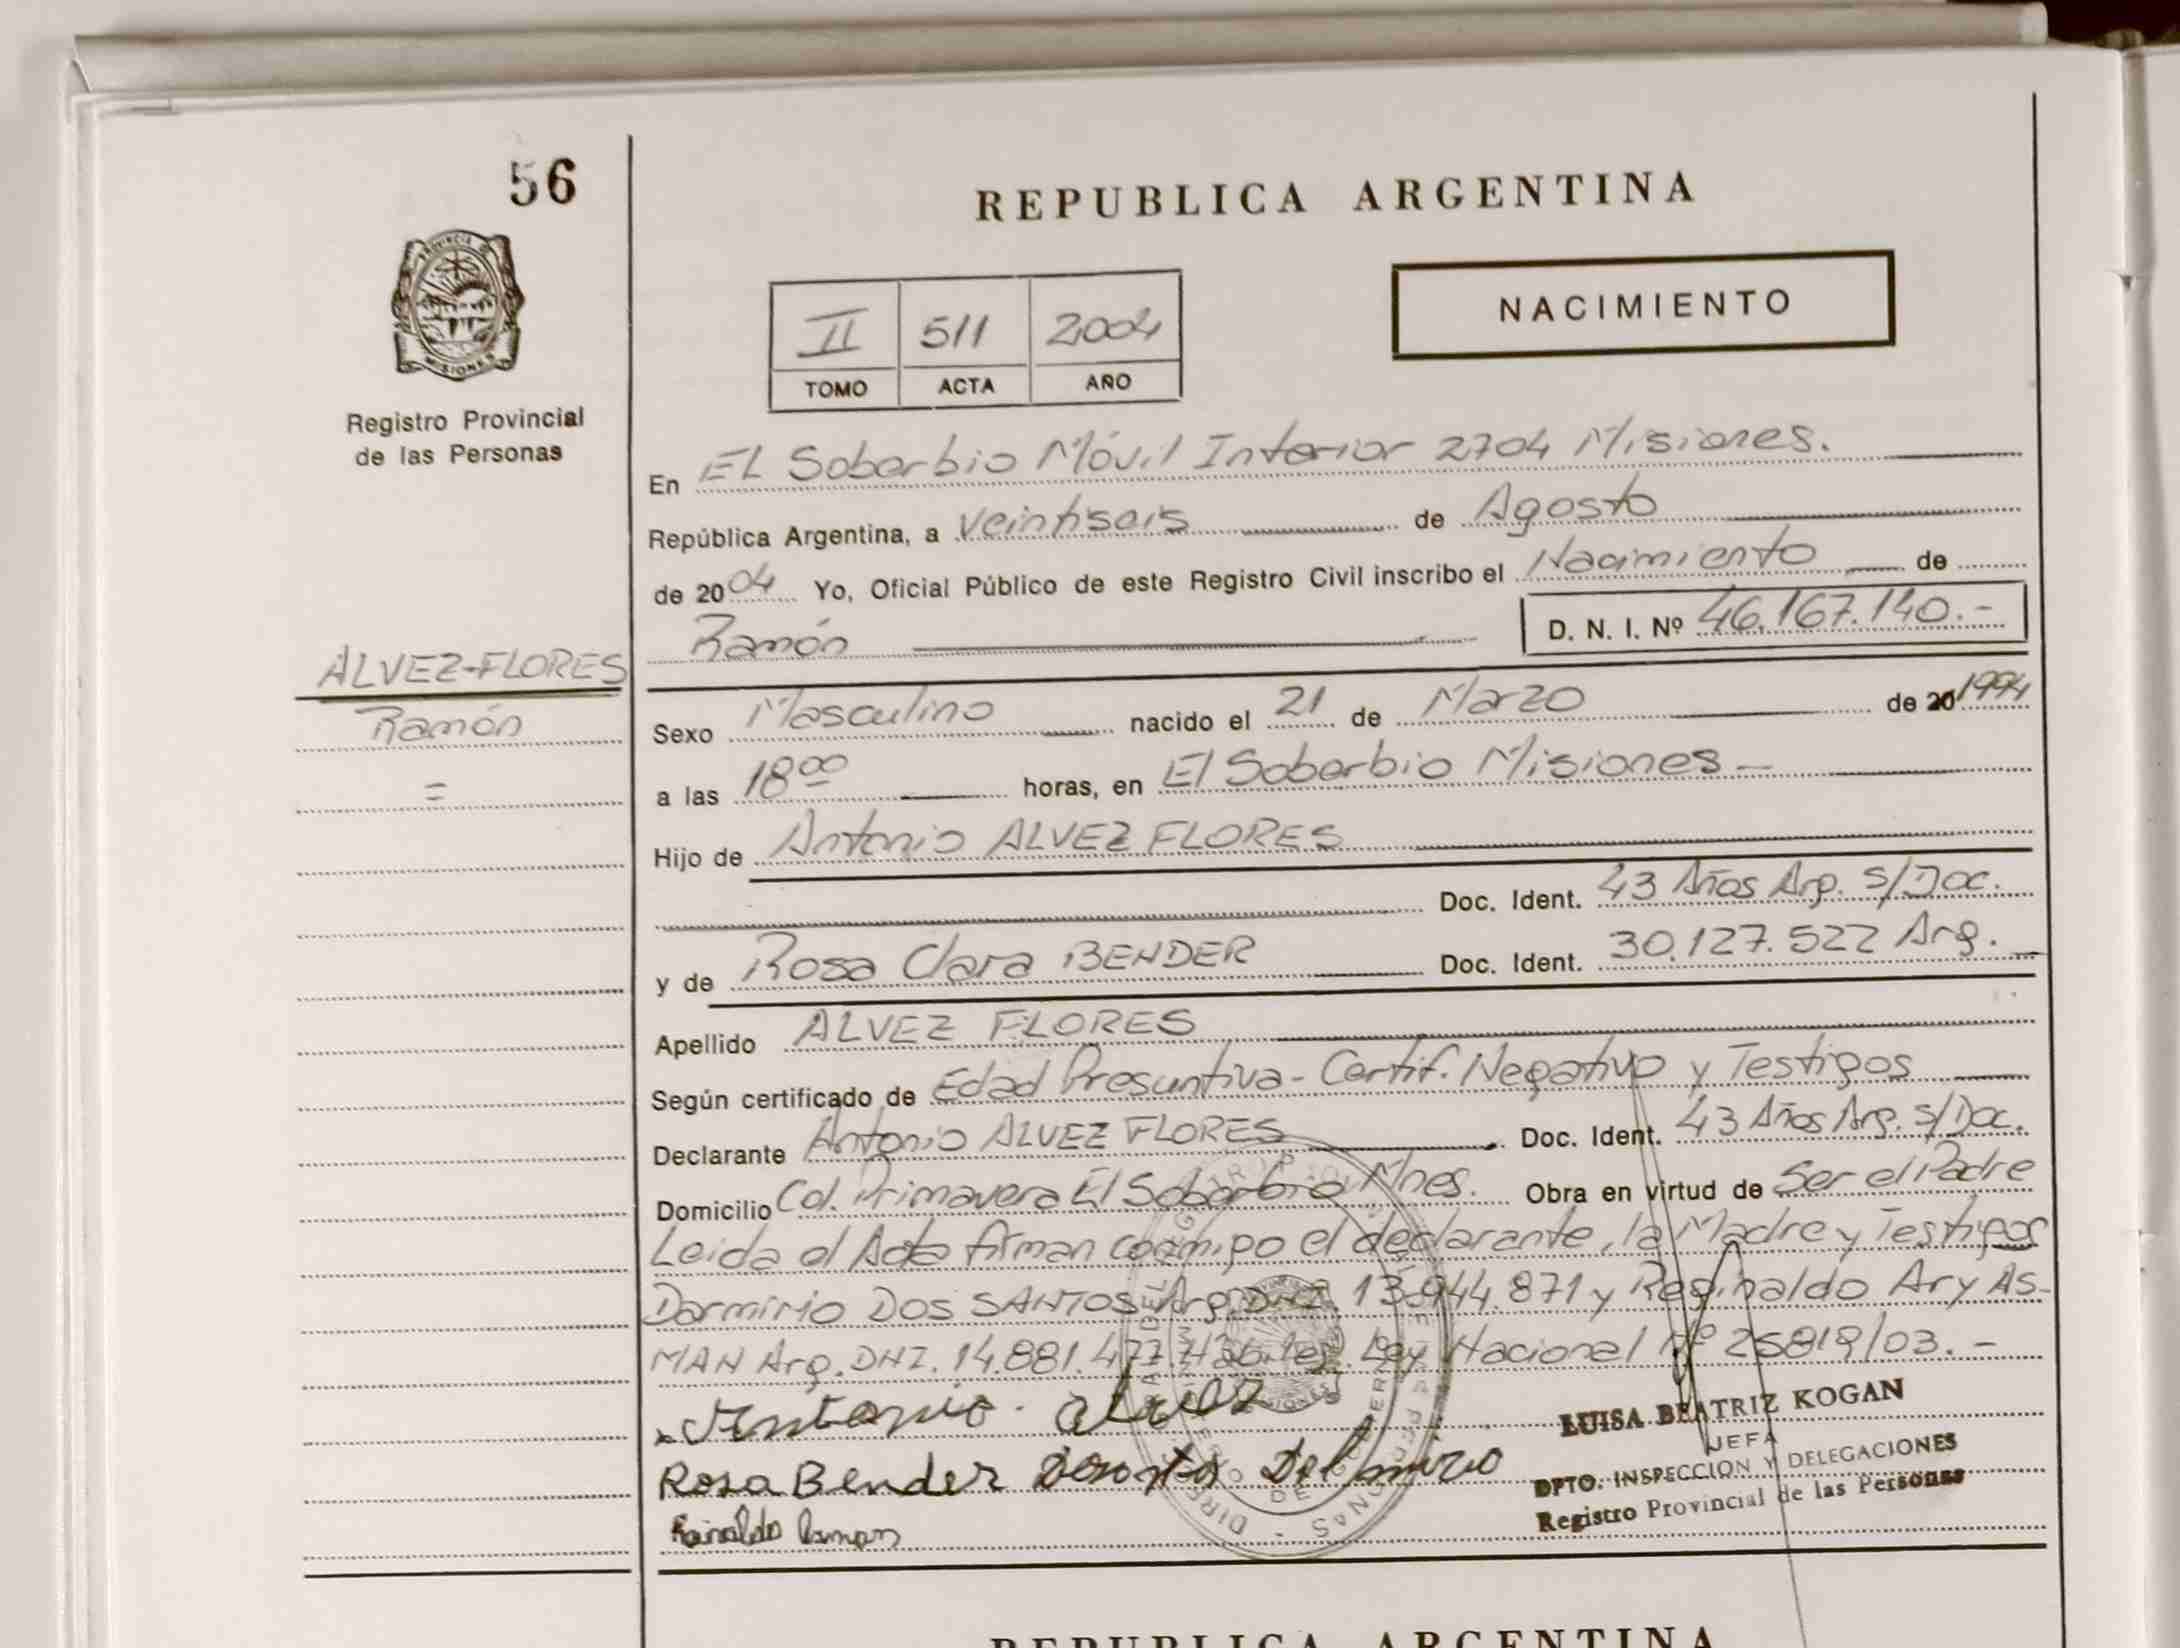 56
REPUBLICA ARGENTINA
PROVINCIA DE
MISIONES
Registro Provincial
de las Personas
II 511 2004
TOMO ACTA AÑO
NACIMIENTO
En EL Soberbio Móvil Interior 2704 Misiones.
República Argentina, a veintiseis de Agosto
de 2004 Yo, Oficial Público de este Registro Civil inscribo el Nacimiento de
Ramón D. N. I. Nº 46.167.140.-
ALVEZ-FLORES
Ramón
=
Sexo Masculino nacido el 21 de Marzo de 20 1994
a las 18 00 horas, en El Soberbio Misiones -
Hijo de Antonio ALVEZ FLORES
Doc. Ident. 43 Años Arg. S/Doc.
y de Rosa Clara BENDER Doc. Ident. 30.127.522 Arg.
Apellido ALVEZ FLORES
Según certificado de Edad Presuntiva - Certif. Negativo y Testigos
Declarante Antonio ALVEZ FLORES Doc. Ident. 43 Años Arg. S/Doc.
Domicilio Col. Primavera El Soberbio Mnes. Obra en virtud de Ser el Padre
Leida el Acta firman conmigo el declarante, la Madre y Testigos
Darmirio DOS SANTOS Arg. DNI. 13.944.871 y Reginaldo Ary AS-
MAN Arg. DNI. 14.881.477. Hábiles. Ley Nacional Nº 25819/03. -
Antonio alvez
Rosa Bender
LUISA BEATRIZ KOGAN
JEFA
DPTO. INSPECCION Y DELEGACIONES
Registro Provincial de las Personas
REPUBLICA ARGENTINA